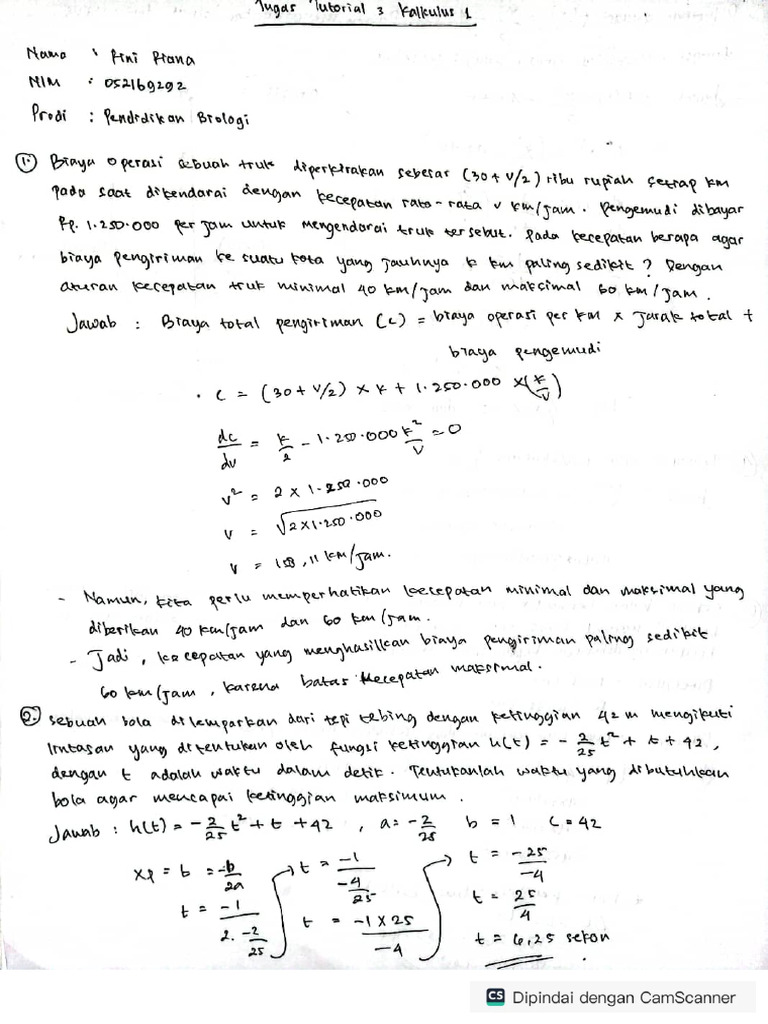 Tugas Tutorial 3 Kalkulus 1
Nama : Fini Fiana
NIM : 052169292
Prodi : Pendidikan Biologi
1. Biaya operasi sebuah truk diperkirakan sebesar (30 + v/2) ribu rupiah setiap km
pada saat dikendarai dengan kecepatan rata-rata v km/jam. Pengemudi dibayar
Rp. 1.250.000 per jam untuk mengendarai truk tersebut. Pada kecepatan berapa agar
biaya pengiriman ke suatu kota yang jauhnya k km paling sedikit? Dengan
aturan kecepatan truk minimal 40 km/jam dan maksimal 60 km/jam.
Jawab : Biaya total pengiriman (C) = biaya operasi per km x Jarak total +
biaya pengemudi
. C = (30 + v/2) x k + 1.250.000 x (k/v)
dc/dv = k/2 - 1.250.000 k²/v = 0
v² = 2 x 1.250.000
v = √2x1.250.000
v = 158,11 km/jam.
- Namun, kita perlu memperhatikan kecepatan minimal dan maksimal yang
diberikan 40 km/jam dan 60 km/jam.
- Jadi, kecepatan yang menghasilkan biaya pengiriman paling sedikit
60 km/jam, karena batas kecepatan maksimal.
2. Sebuah bola dilemparkan dari tepi tebing dengan ketinggian 42 m mengikuti
lintasan yang ditentukan oleh fungsi ketinggian h(t) = - 2/25 t² + t + 42,
dengan t adalah waktu dalam detik. Tentukanlah waktu yang dibutuhkan
bola agar mencapai ketinggian maksimum.
Jawab : h(t) = - 2/25 t² + t + 42 , a = - 2/25 b = 1 c = 42
xp = b = -b/2a
t = -1/2. -2/25
t = -1/-4/25
t = -1 x 25/-4
t = -25/-4
t = 25/4
t = 6,25 sekon
CS Dipindai dengan CamScanner